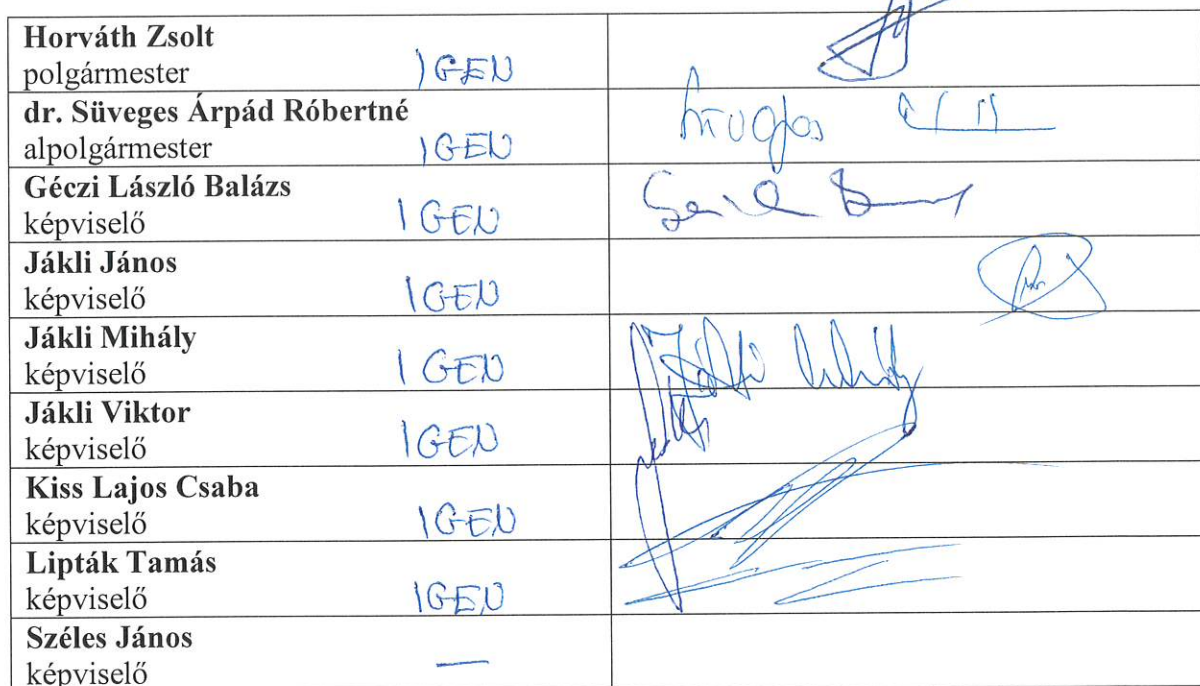 Horváth Zsolt
polgármester IGEN
dr. Süveges Árpád Róbertné
alpolgármester IGEN
Géczi László Balázs
képviselő IGEN
Jákli János
képviselő IGEN
Jákli Mihály
képviselő IGEN
Jákli Viktor
képviselő IGEN
Kiss Lajos Csaba
képviselő IGEN
Lipták Tamás
képviselő IGEN
Széles János
képviselő —